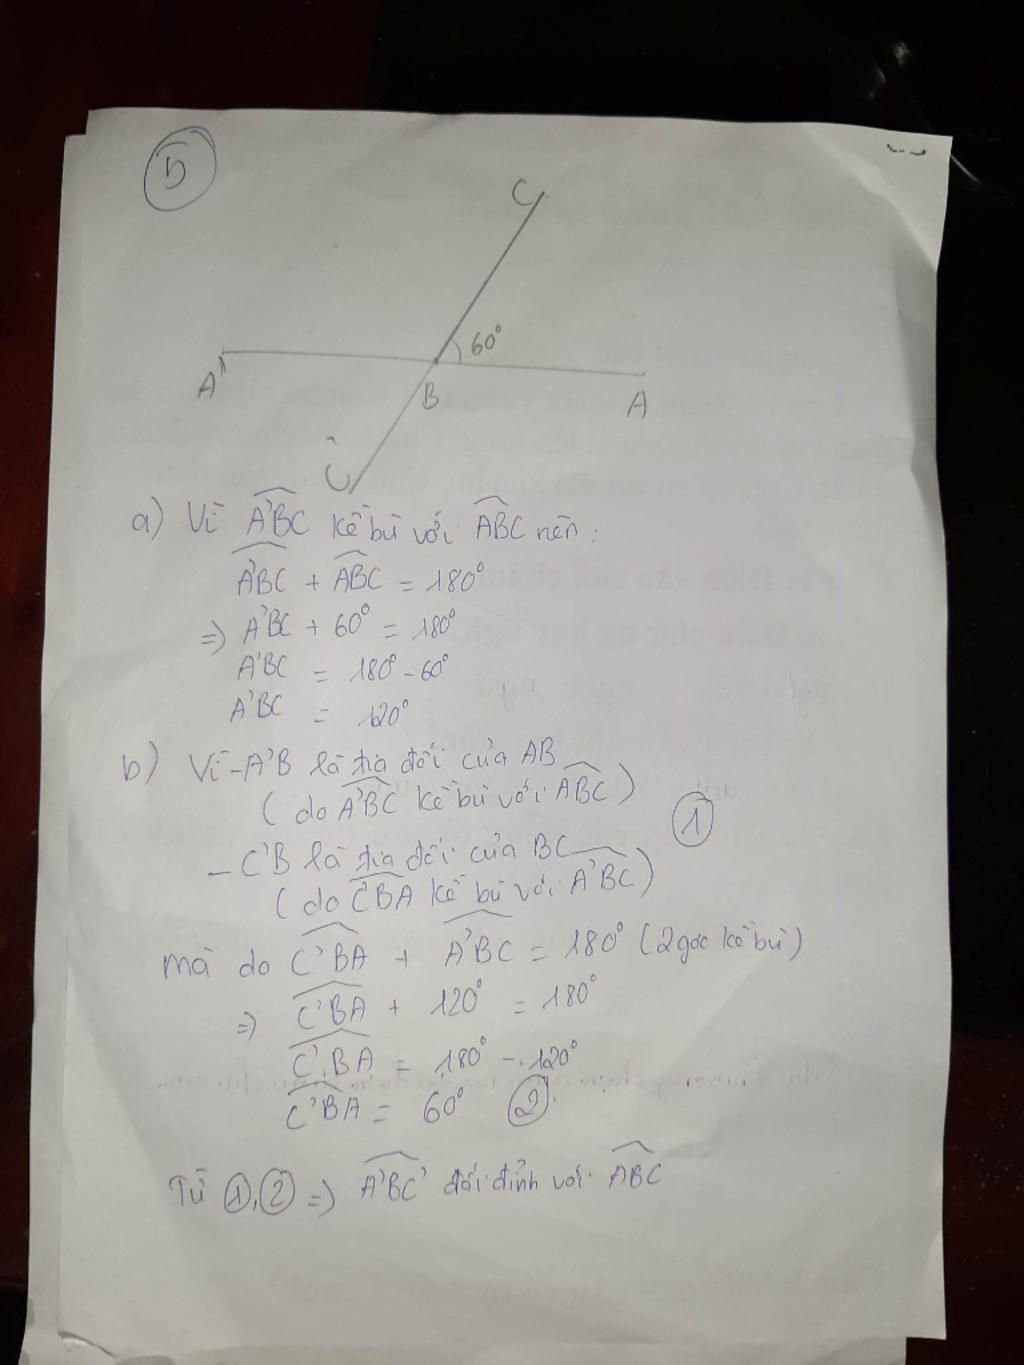 5
C
60°
A'
B
A
C'
a) Vì A'BC kề bù với ABC nên:
A'BC + ABC = 180°
=) A'BC + 60° = 180°
A'BC = 180° - 60°
A'BC = 120°
b) Vì - A'B là tia đối của AB
( do A'BC kề bù với ABC )
1
- C'B là tia đối của BC
( do C'BA kề bù với A'BC )
mà do C'BA + A'BC = 180° ( 2 góc kề bù )
=) C'BA + 120° = 180°
C'BA = 180° - 120°
C'BA = 60° 2
Từ 1, 2 =) A'BC' đối đỉnh với ABC